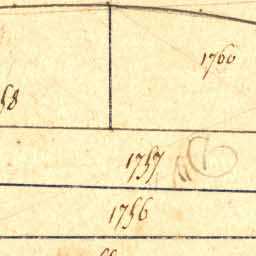 1760
58
1757
1756